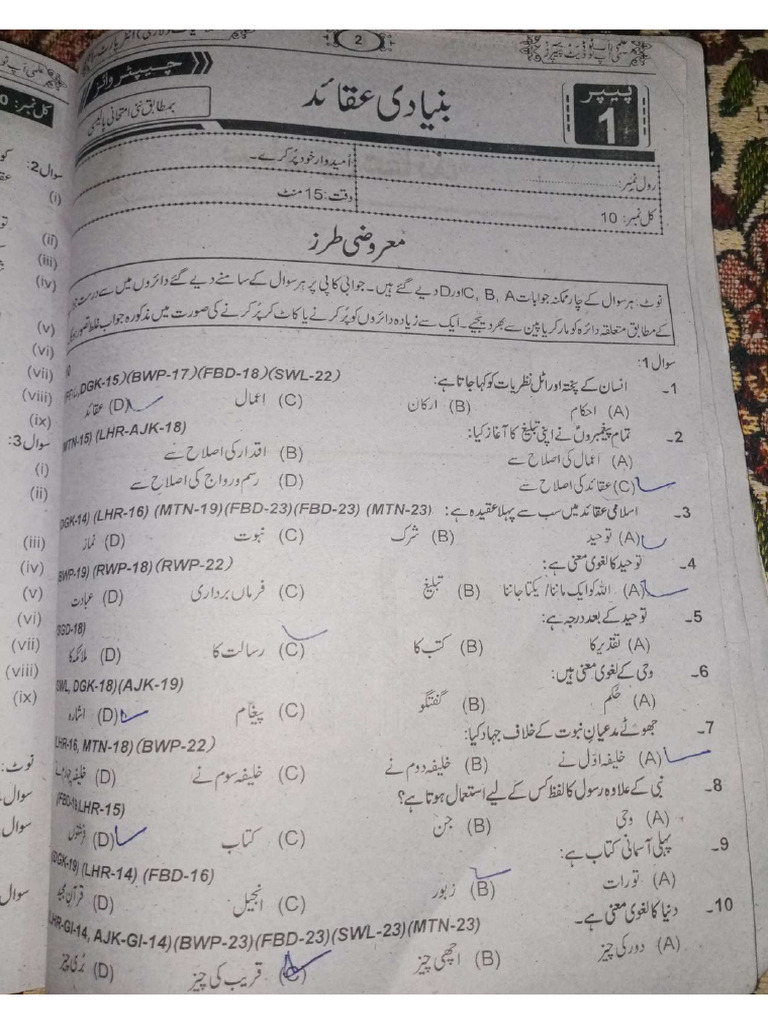 2
چیپٹر وائز
بمطابق نئی امتحانی پالیسی
بنیادی عقائد
پیپر
1
رول نمبر: امیدوار خود پُر کرے۔
کل نمبر: 10 وقت: 15 منٹ
معروضی طرز
نوٹ: ہر سوال کے چار ممکنہ جوابات A، B، C اور D دیے گئے ہیں۔ جوابی کاپی پر ہر سوال کے سامنے دیے گئے دائروں میں سے درست
کے مطابق متعلقہ دائرہ کو مارکر یا پین سے بھر دیجیے۔ ایک سے زیادہ دائروں کو پُر کرنے یا کاٹ کر پُر کرنے کی صورت میں مذکورہ جواب غلط تصور
سوال 1:
1۔ انسان کے پختہ اور اٹل نظریات کو کہا جاتا ہے: DGK-15)(BWP-17)(FBD-18)(SWL-22)
(A) احکام (B) ارکان (C) اعمال (D) عقائد
2۔ تمام پیغمبروں نے اپنی تبلیغ کا آغاز کیا: MTN-15) (LHR-AJK-18)
(A) اعمال کی اصلاح سے (B) اقدار کی اصلاح سے
(C) عقائد کی اصلاح سے (D) رسم و رواج کی اصلاح سے
3۔ اسلامی عقائد میں سب سے پہلا عقیدہ ہے: DGK-14) (LHR-16) (MTN-19)(FBD-23)(FBD-23) (MTN-23)
(A) توحید (B) شرک (C) نبوت (D) نماز
4۔ توحید کا لغوی معنی ہے: BWP-19) (RWP-18)(RWP-22)
(A) اللہ کو ایک ماننا/ یکتا جاننا (B) تبلیغ (C) فرماں برداری (D) عبادت
5۔ توحید کے بعد درجہ ہے: SGD-18)
(A) تقدیر کا (B) کتب کا (C) رسالت کا (D) ملائکہ کا
6۔ وحی کے لغوی معنی ہیں: SWL, DGK-18)(AJK-19)
(A) حُکم (B) گفتگو (C) پیغام (D) اشارہ
7۔ جھوٹے مدعیانِ نبوت کے خلاف جہاد کیا: LHR-16, MTN-18)(BWP-22)
(A) خلیفہ اوّل نے (B) خلیفہ دوم نے (C) خلیفہ سوم نے (D) خلیفہ چہارم نے
8۔ نبی کے علاوہ رسول کا لفظ کس کے لیے استعمال ہوتا ہے؟ LHR-15)
(A) وحی (B) جن (C) کتاب (D) فرشتوں
9۔ پہلی آسمانی کتاب ہے: (DGK-19) (LHR-14) (FBD-16)
(A) تورات (B) زبور (C) انجیل (D) قرآن مجید
10۔ دنیا کا لغوی معنی ہے۔ LHR-GI-14, AJK-GI-14)(BWP-23)(FBD-23)(SWL-23)(MTN-23)
(A) دور کی چیز (B) اچھی چیز (C) قریب کی چیز (D) بُری چیز
کل نمبر:
سوال 2:
(i)
(ii)
(iii)
(iv)
(v)
(vi)
(vii)
(viii)
(ix)
سوال 3:
(i)
(ii)
(iii)
(iv)
(v)
(vi)
(vii)
(viii)
(ix)
نوٹ:
سوال
سوال
سوال